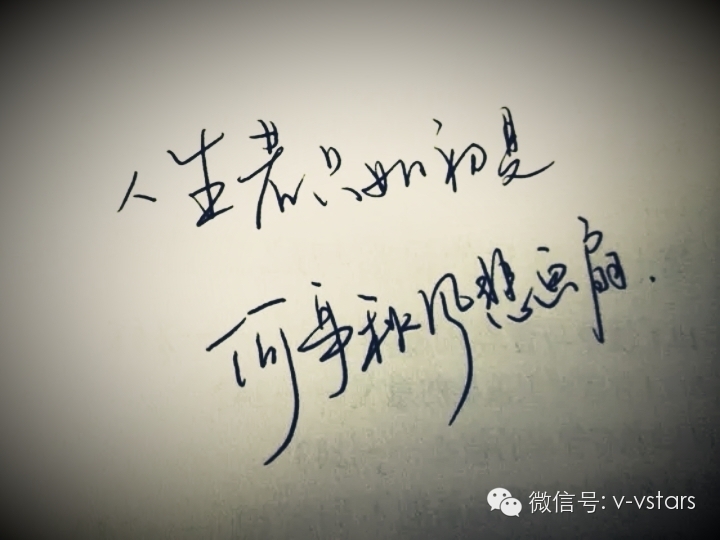 人生若只如初见
何事秋风悲画扇.
微信号: v-vstars